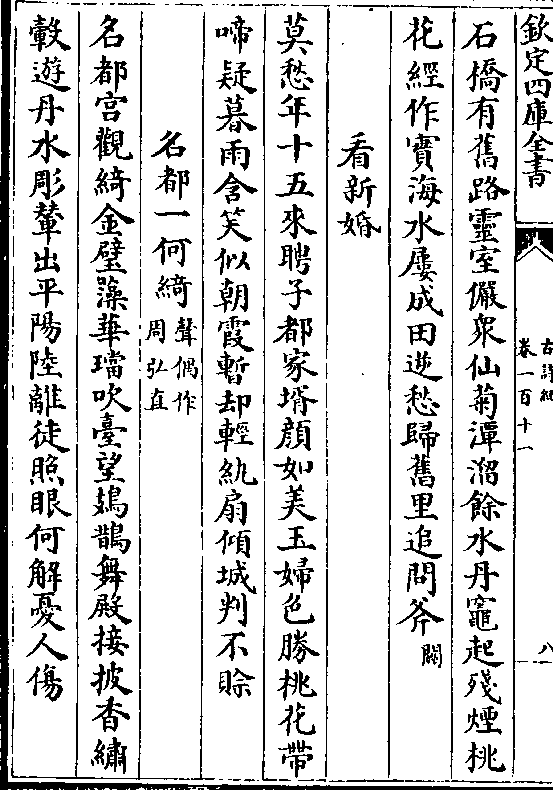 欽定四庫全書
卷一百十一
八
石橋有舊路靈室儼衆仙菊潭溜餘水丹竈起殘煙桃
花經作實海水屢成田逆愁歸舊里追問斧闕
看新婚
莫愁年十五來聘子都家壻顔如美玉婦色勝桃花帶
啼疑暮雨含笑似朝霞暫却輕紈扇傾城判不賒
名都一何綺聲偶作周弘直
名都宫觀綺金壁藻華璫吹臺望鳷鵲舞殿接披香繡
轂遊丹水彫輦出平陽陸離徒照眼何解憂人傷